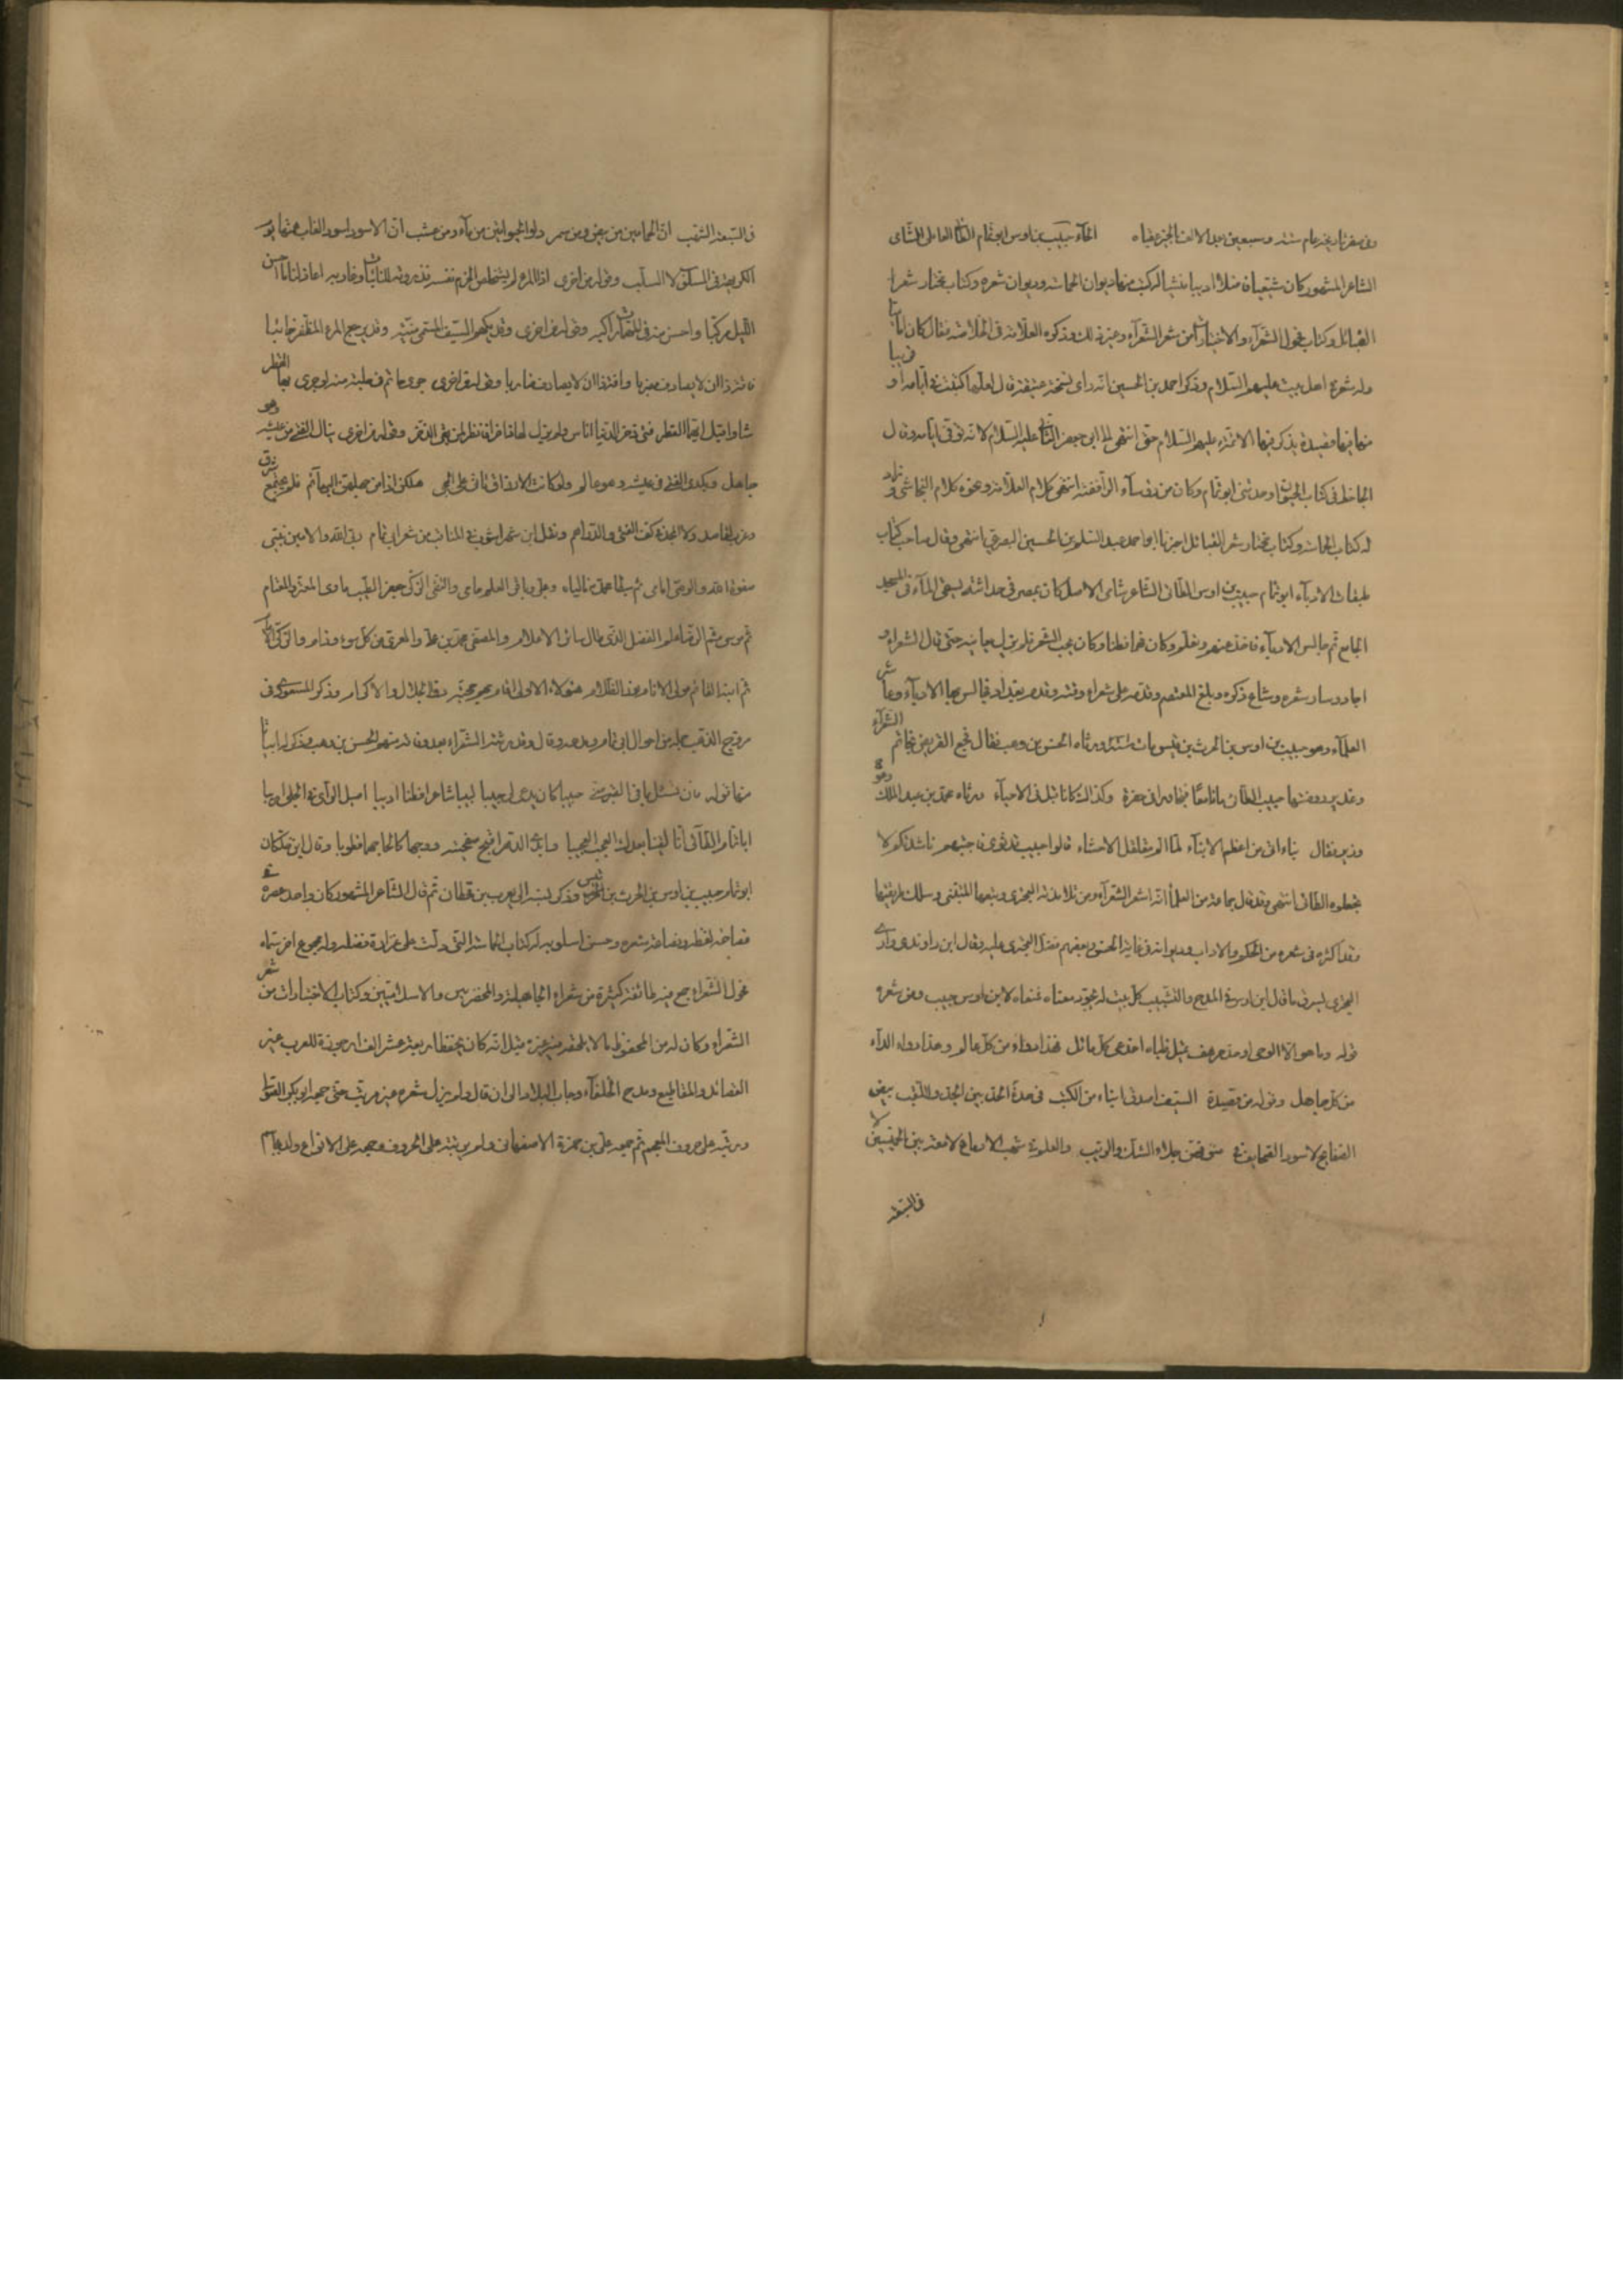 الحاء حبيب بن اوس ابو تمام الطائي العاملي الشامي
الشاعر المشهور كان شيعيا فاضلا اديبا منشيا له كتب منها ديوان الحماسة وديوان شعره وكتاب مختار شعر
القبائل وكتاب فحول الشعرآء والاختيارات من شعر الشعرآء وغير ذلك وذكره العلامة في الخلاصة فقال كان اماميا
وله شعر في اهل بيت عليهم السلام وذكر احمد بن الحسين انه راى نسخة عتيقة قال لعلها كتبت في ايامه او قريبا
منها فيها قصيدة يذكر فيها الائمة عليهم السلام حتى انتهى الى ابي جعفر الثاني عليه السلام لانه توفي في ايامه وقال
الجاحظ في كتاب الحيوان وحدثني ابو تمام وكان من رؤسآء الرافضة انتهى كلام العلامة ونحوه كلام النجاشي وزاد
له كتاب الحماسة وكتاب مختار شعر القبائل اخبرنا ابو احمد عبد السلام بن الحسين البصري انتهى وقال صاحب كتاب
طبقات الادبآء ابو تمام حبيب بن اوس الطائي الشاعر شامي الاصل كان بمصر في حداثته يسقي المآء في المسجد
الجامع ثم جالس الادبآء فاخذ عنهم وتعلم وكان فهما فطنا وكان يحب الشعر فلم يزل يعانيه حتى قال الشعر و
اجاد وسار شعره وشاع ذكره وبلغ المعتصم وقدمه على شعراء وقته وقدم بغداد فجالس بها الادبآء وعاشر
العلمآء وهو حبيب بن اوس بن الحرث بن قيس مات ورثاه الحسن بن وهب فقال فجع القريض بخاتم الشعرآء
وغدير روضتها حبيب الطائي ماتا معا فتجاورا في حفرة وكذاك كانا قبل في الاحيآء ورثاه محمد بن عبد الملك وهو
وزير فقال نباء اتى من اعظم الانبآء لما الم مقلقل الاحشاء قالوا حبيب قد ثوى فاجبتهم ناشدتكم لا
تجعلوه الطائي انتهى وقد قال جماعة من العلمآ انه اشعر الشعرآء ومن تلامذته البحتري وتبعهما المتنبي وسلك طريقتهما
وقد اكثر في شعره من الحكم والاداب وديوانه في غاية الحسن وبعضهم فضل البحتري عليه وقال ابن
البحتري يسرق ما قال ابن اوس في المدح والتشبيب كل بيت له تجود معناه فمعناه لابن اوس حبيب ومن شعره
قوله وما هو الا الوحي او حد مرهف تميل ظباه اخدعي كل مائل فهذا دواء من كل عالم وهذا دواء الدآء
من كل جاهل وقوله من قصيدة السيف اصدق انباء من الكتب في حده الحد بين الجد واللعب بيض
الصفايح لا سود الصحايف في متونهن جلاء الشك والريب والعلم في شهب الارماح لامعة بين الخميسين لا
في السبعة
في السبعة الشهب ان الحمامين من بيض ومن سمر دلوا الحيوتين من مآء ومن عشب ان الاسود اسود الغاب همتها يوم
الكريهة في المسلوب لا السلب وقوله من اخرى
الليل مركبا وقوله من اخرى وقد يكهم السيف المسمى منية وقد يرجع المرء المظفر خائبا
فآفة ذا ان لا يصادف مضربا وآفة ذا ان لا يصادف ضاربا وقوله من اخرى جرى حاتم في حلبة منه لو جرى بها القطر
شاوا قيل ايهما القطر فتى ذخر الدنيا اناس ولم يزل لها باذلا فانظر لمن بقي الذخر وقوله من اخرى ينال الفتى من عيشه وهو
جاهل ويكدى الفتى في عيشه وهو عالم ولو كانت الارزاق تاتي على الحجى هلكن اذا من جهلهن البهآئم فلم يجتمع شرق
وغرب لقاصد ولا المجد في كف الفتى والدراهم ونقل ابن شهراشوب في المناقب من شعر ابي تمام ربي الله والامين نبيي
صفوة الله والوصي امامي ثم سبطا محمد تالياه وعلي وباقر العلم حامي والتقي الزكي جعفر الطيب ماوى المعتر والمعتام
ثم موسى ثم الرضا علم الفضل الذي طال سائر الاعلام والمصفى محمد بن علي والمعرى من كل سوء وذام
ثم ابنه القائم مولى الانام هؤلاء الاولى اقام بهم حجته ذو الجلال والاكرام وذكر المسعودي في
مروج الذهب جملة من احوال ابي تمام ومدحه وقال وقد رثته الشعراء بعد وفاته منهم الحسن بن وهب وذكر له ابياتا
منها قوله
ابا تمام الطائي انا لقينا بعدك العجب العجيبا وابدى الدهر اقبح صفحتيه ووجها كالحا جهما قطوبا وقال ابن خلكان
ابو تمام حبيب بن اوس بن الحرث بن قيس وذكر نسبه الى يعرب بن قحطان ثم قال الشاعر المشهور كان واحد عصره في
فصاحة لفظه ونصاعة شعره وحسن اسلوبه له كتاب الحماسة التي دلت على غزارة فضله وله مجموع اخر سماه
فحول الشعراء جمع فيه طائفة كثيرة من شعراء الجاهلية والمخضرمين والاسلاميين وكتاب الاختيارات من شعر
الشعراء وكان له من المحفوظ ما لا يلحقه فيه غيره قيل انه كان يحفظ اربعة عشر الف ارجوزة للعرب غير
القصائد والمقاطيع ومدح الخلفآء وجاب البلاد الى ان قال ولم يزل شعره غير مرتب حتى جمعه ابو بكر الصولي
ورتبه على حروف المعجم ثم جمعه علي بن حمزة الاصفهاني ولم يرتبه على الحروف وجمعه على الانواع